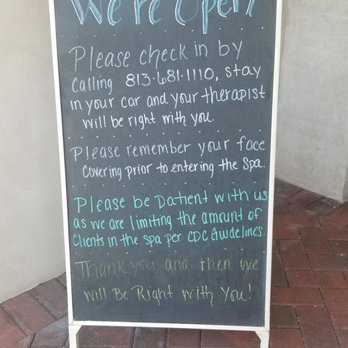 We're Open!
Please check in by
Calling 813.681.1110, stay
in your car and your therapist
will be right with you.
Please remember your face
Covering prior to entering the Spa.
Please be Patient with us
as we are limiting the amount of
Clients in the spa per CDC Guidelines.
Thank you and then we
will Be Right with You!